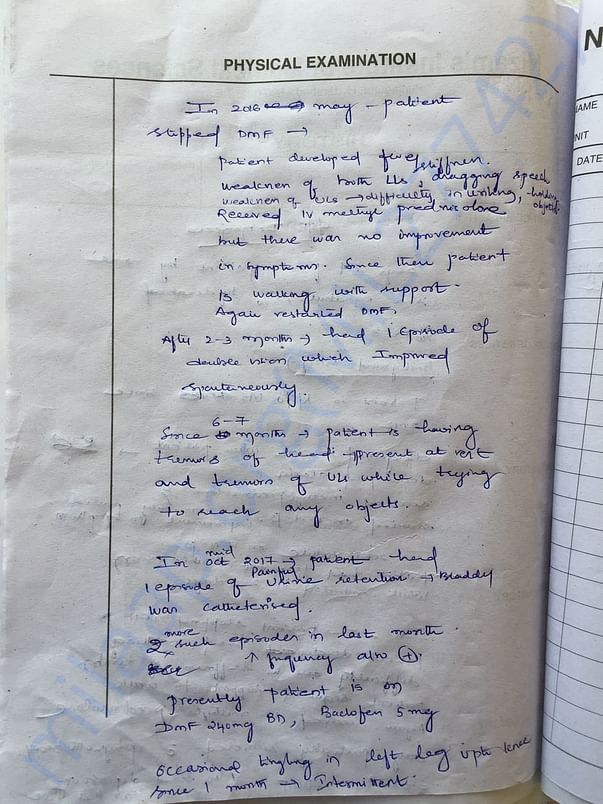 PHYSICAL EXAMINATION
In 2016 may - patient
stopped DMF →
patient developed stiffness.
weakness of both LLs, dragging speech
weakness of ULs → difficulty in writing, holding objects.
Received IV methyl prednisolone
but there was no improvement
in symptoms. Since then patient
is walking with support.
Again restarted DMF.
After 2-3 months → had 1 episode of
double vision which Improved
spontaneously.
Since 6-7 months → patient is having
tremors of head → present at rest
and tremors of ULs while trying
to reach any objects.
In mid oct 2017 → patient had
1 episode of Painful Urine retention → Bladder
was catheterised.
2 more such episodes in last month.
↑ frequency also (+).
presently patient is on
DMF 240mg BD, Baclofen 5mg
Occasional tingling in left leg upto knee
since 1 month → Intermittent.
N
NAME
UNIT
DATE